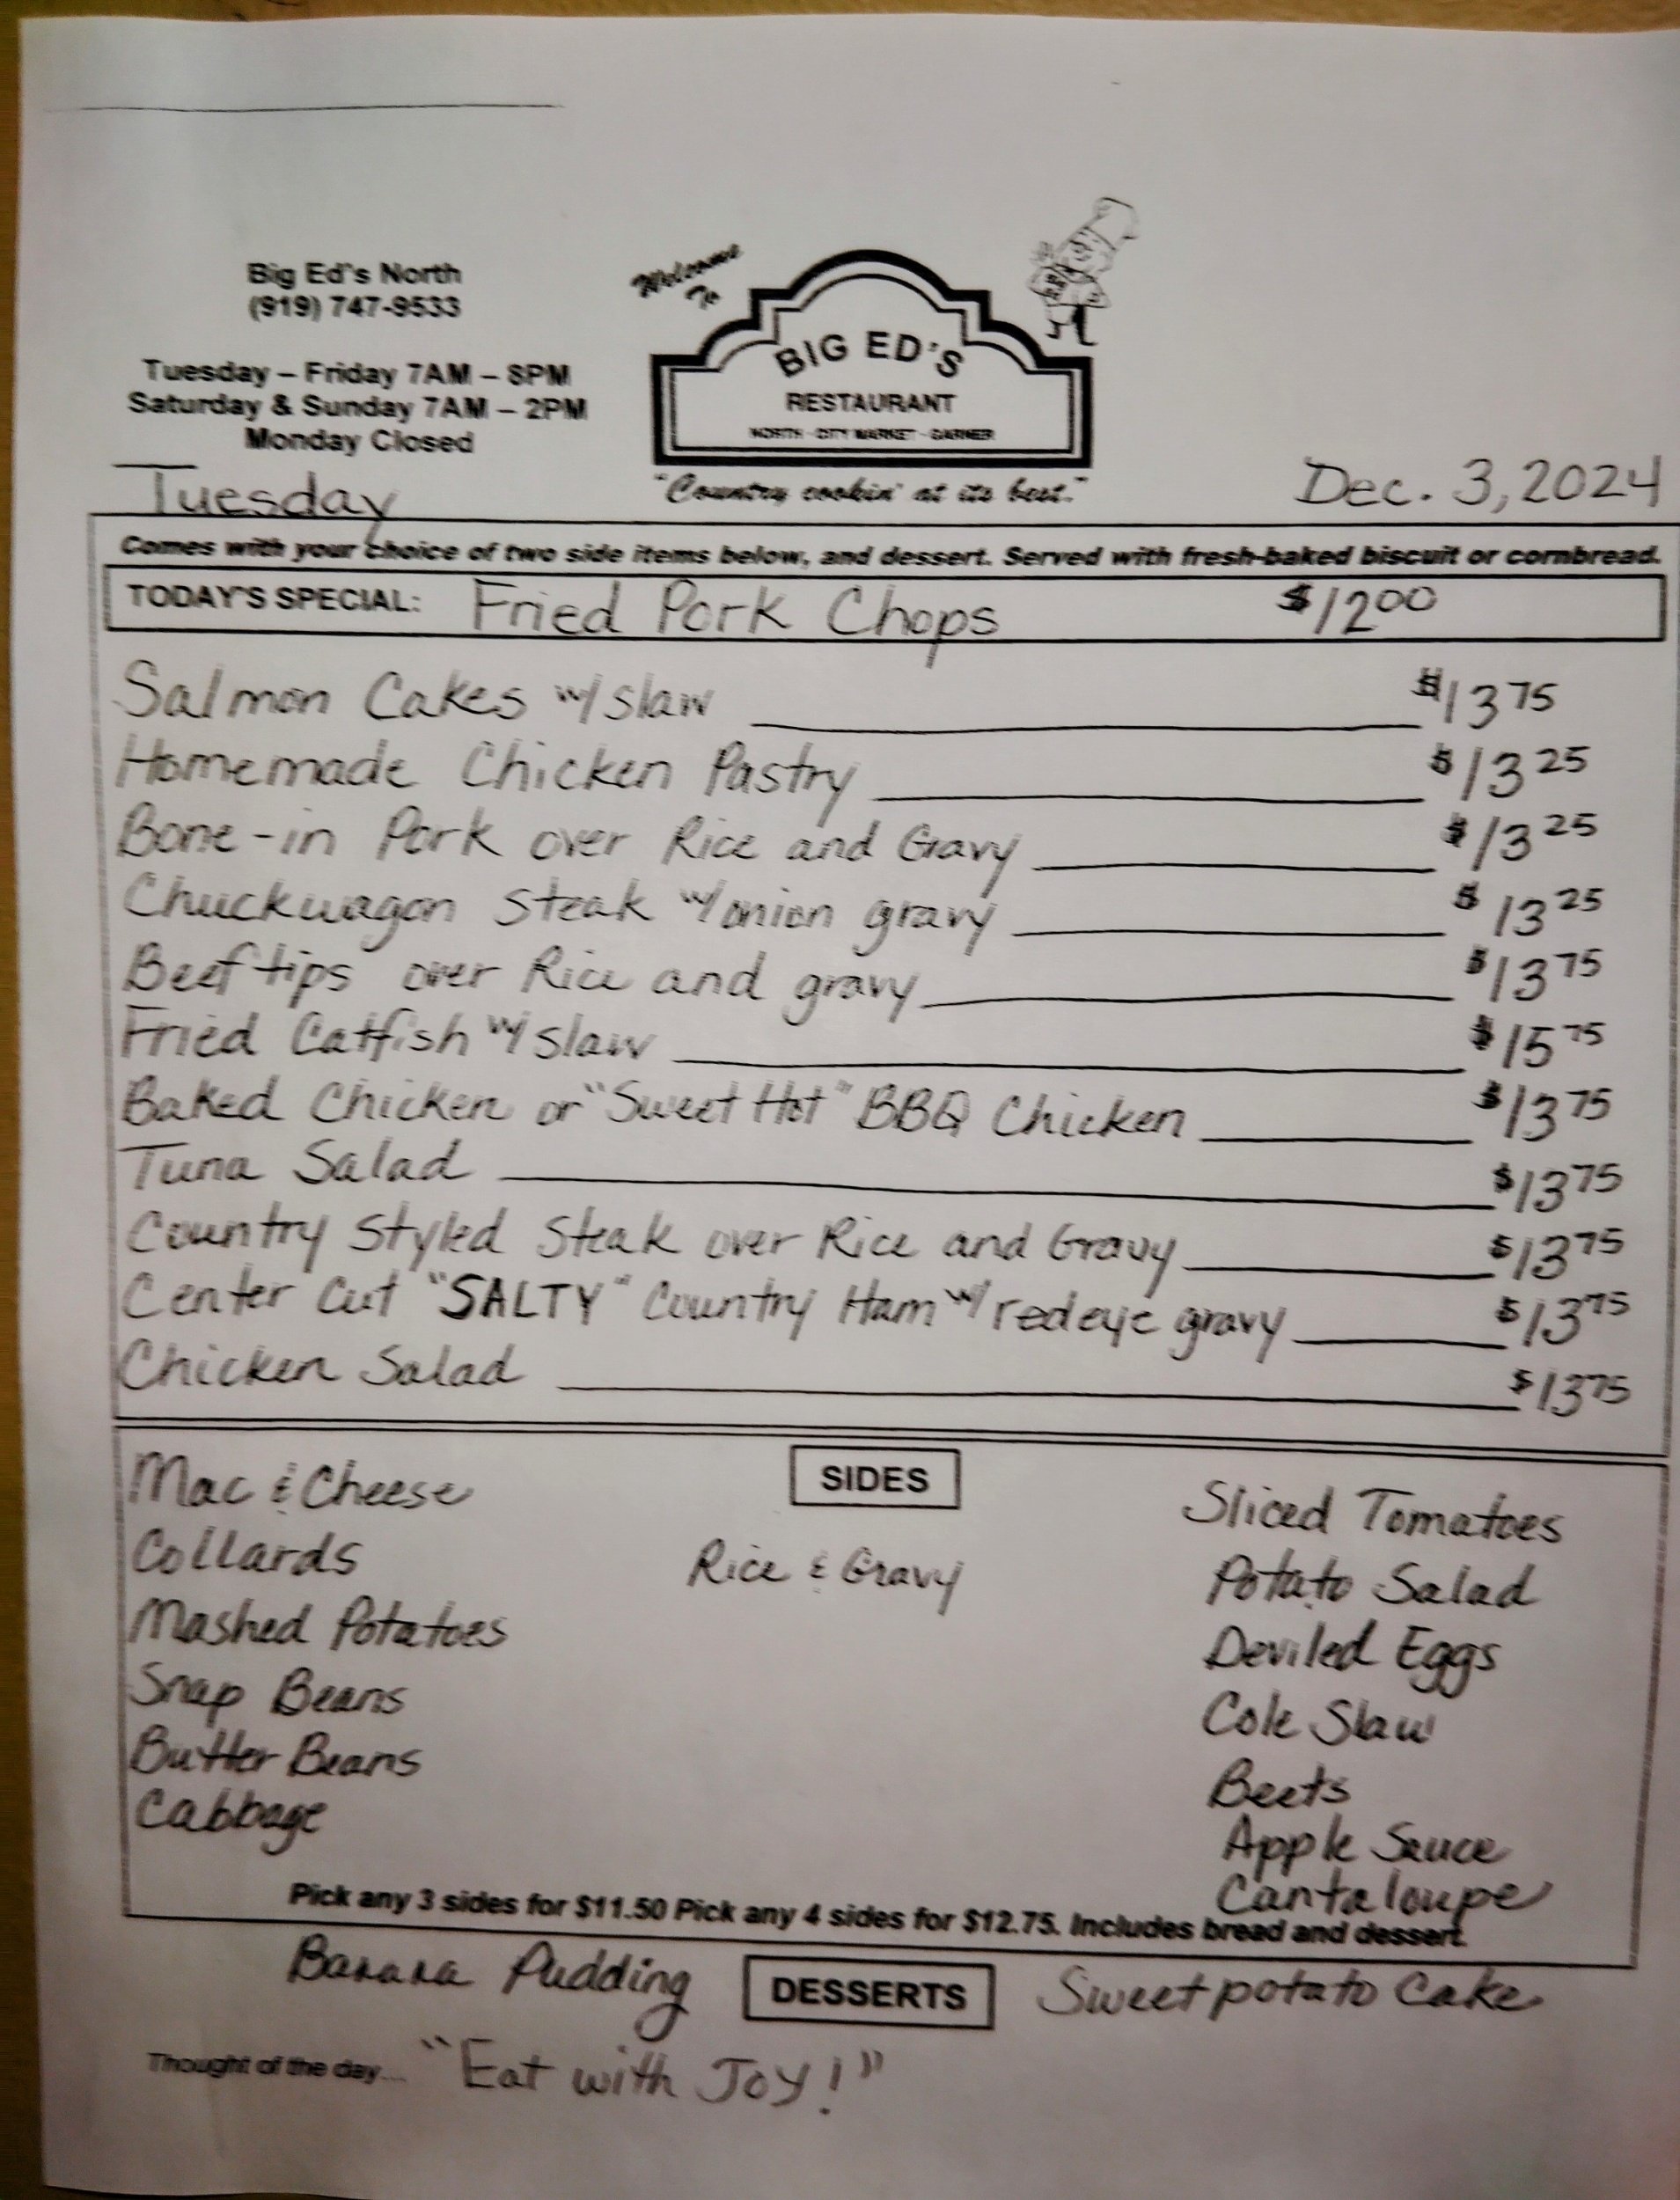 Big Ed's North
(919) 747-9533
Tuesday – Friday 7AM – 8PM
Saturday & Sunday 7AM – 2PM
Monday Closed
Welcome
To
BIG ED'S
RESTAURANT
NORTH - CITY MARKET - GARNER
"Country cookin' at its best."
Tuesday
Dec. 3, 2024
Comes with your choice of two side items below, and dessert. Served with fresh-baked biscuit or cornbread.
TODAY'S SPECIAL: Fried Pork Chops $12.00
Salmon Cakes w/ slaw $13 75
Homemade Chicken Pastry $13 25
Bone-in Pork over Rice and Gravy $13 25
Chuckwagon steak w/ onion gravy $13 25
Beef tips over Rice and gravy $13 75
Fried Catfish w/ slaw $15 75
Baked Chicken or "Sweet Hot" BBQ Chicken $13 75
Tuna Salad $13 75
Country Styled Steak over Rice and Gravy $13 75
Center Cut "SALTY" Country Ham w/ redeye gravy $13 75
Chicken Salad $13 75
SIDES
Mac & Cheese
Collards
Mashed Potatoes
Snap Beans
Butter Beans
Cabbage
Rice & Gravy
Sliced Tomatoes
Potato Salad
Deviled Eggs
Cole Slaw
Beets
Apple Sauce
Cantaloupe
Pick any 3 sides for $11.50 Pick any 4 sides for $12.75. Includes bread and dessert.
Banana Pudding DESSERTS Sweetpotato Cake
Thought of the day... "Eat with Joy!"